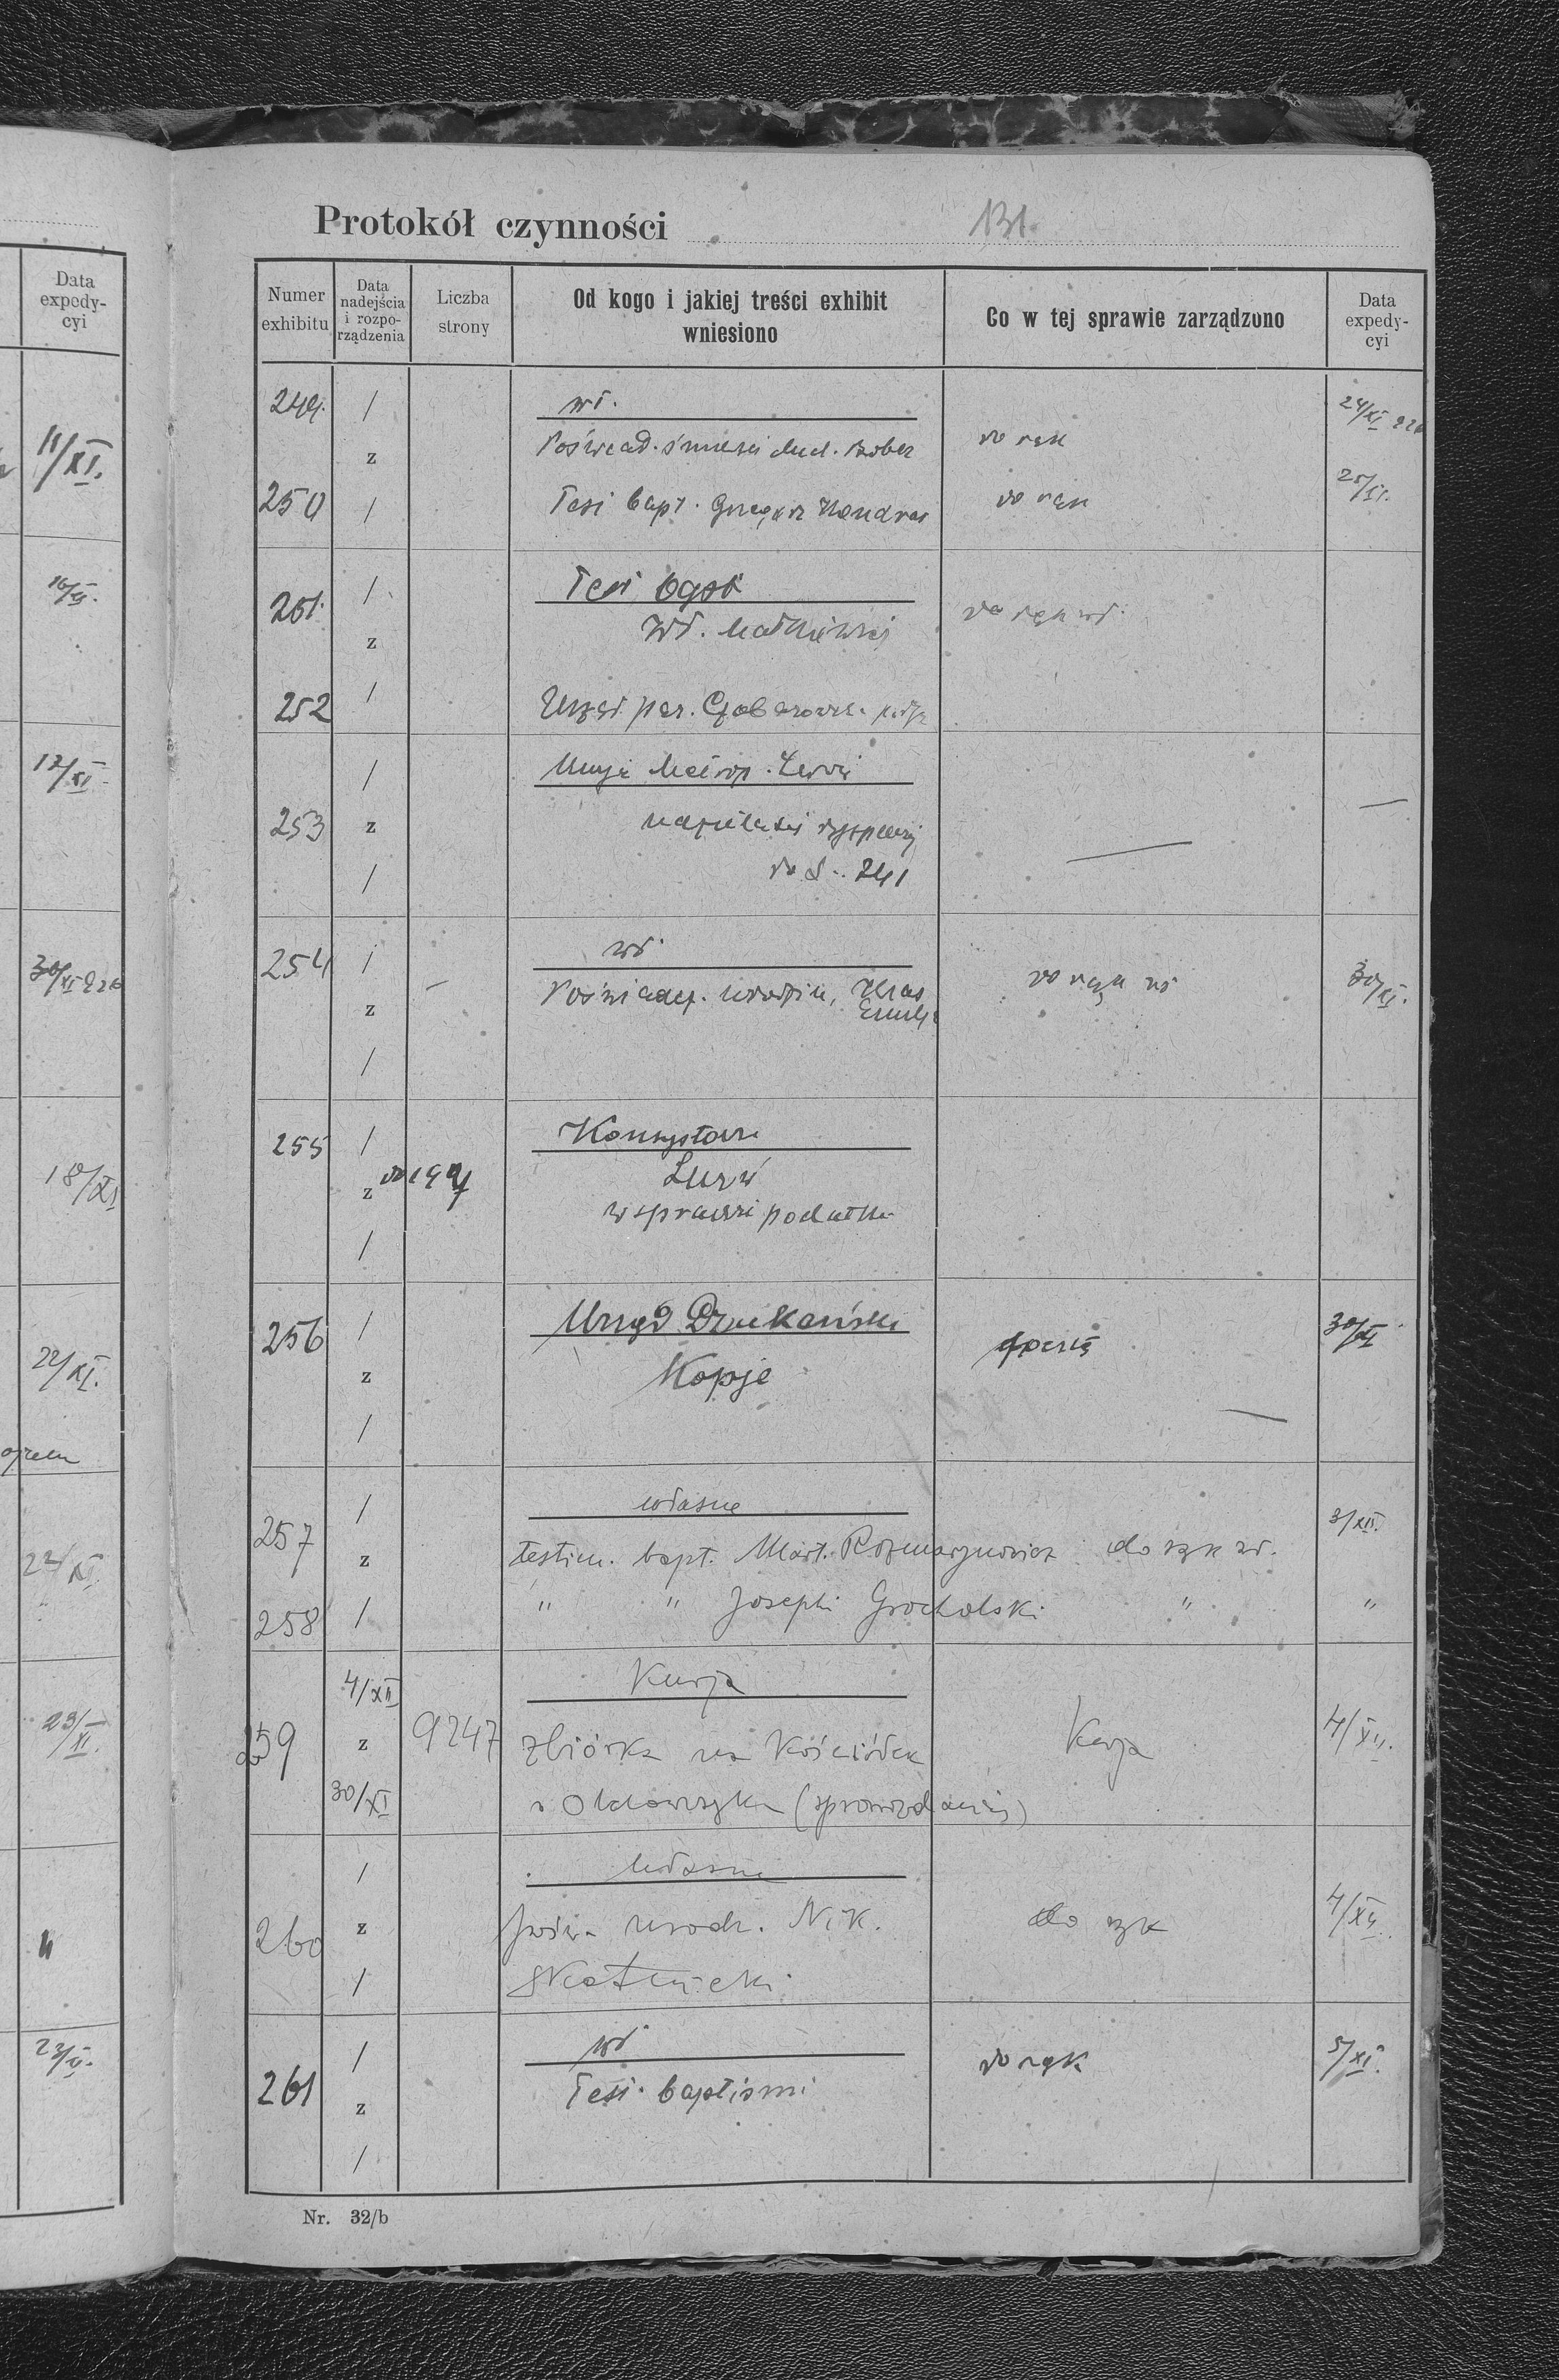 Data expedycyi
11/XI.
16/XI.
17/XI.
30/XI 926
18/XI
22/XI.
22/XI.
23/XI.
"
23/XI.
Protokół czynności 131.
Numer exhibitu
Data nadejścia i rozporządzenia
Liczba strony
Od kogo i jakiej treści exhibit wniesiono
Co w tej sprawie zarządzono
Data expedycyi
249. / wł. 24/XI 926
z Poświad. śmierci Bober do rąk
250 / Test bapt. Grzegorz do rąk 25/XI.
251. / Test
z Wł. do rąk wł.
252 / Urząd par.
/ Kurja Metrop. Lwów
253 z
/ do L. 241
254 / wł.
z Poświadcz. urodzin, Kras do rąk wł 30/XI.
/
255 / Konsystorz
z do 197 Lwów
w sprawie podatku
/
256 / Urząd Dziekański 30/XI
z Kopje
/
257 / własne 3/XII.
z testim. bapt. Mart. Rozmarynowicz do rąk wł.
258 / " " Josephi Grocholski " "
4/XII Kurja
259 z 9247 Zbiórka na Kościółek Kurja 4/XII.
30/XI (sprawozdanie)
/ własne
260 z Pośw. urodz. Nik. do rąk 4/XII.
/ Skotnicki
/ wł
261 z Test. baptismi do rąk 5/XI.
/
Nr. 32/b